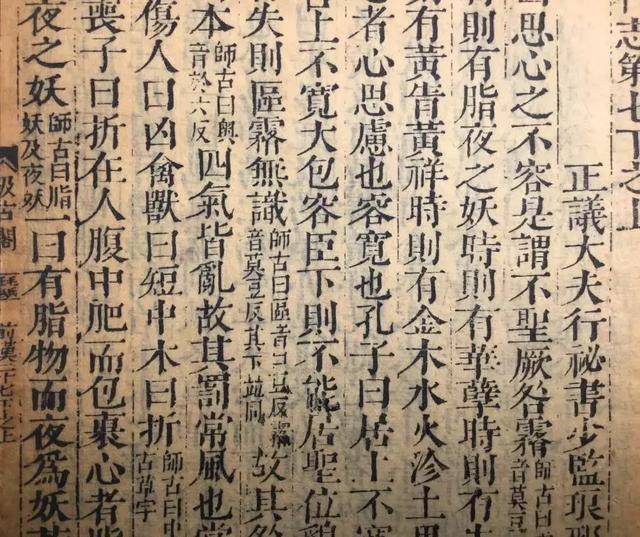 志第七下之上
正議大夫行祕書少監琅邪
曰思心之不容是謂不聖厥咎霧師古曰音莫豆
則有脂夜之妖時則有華孽時則有牛
則有黃眚黃祥時則有金木水火沴土思
者心思慮也容寬也孔子曰居上不寬
言上不寬大包容臣下則不能居聖位貌
失則區霧無識師古曰區音口豆反霧音莫豆反其下並同故其咎
本師古曰與音於六反四氣皆亂故其罰常風也常
傷人曰凶禽獸曰短屮木曰折師古曰屮古草字
喪子曰折在人腹中肥而包裹心者脂
夜之妖師古曰脂妖及夜妖一曰有脂物而夜爲妖若
汲古閣 前漢二十七下之上